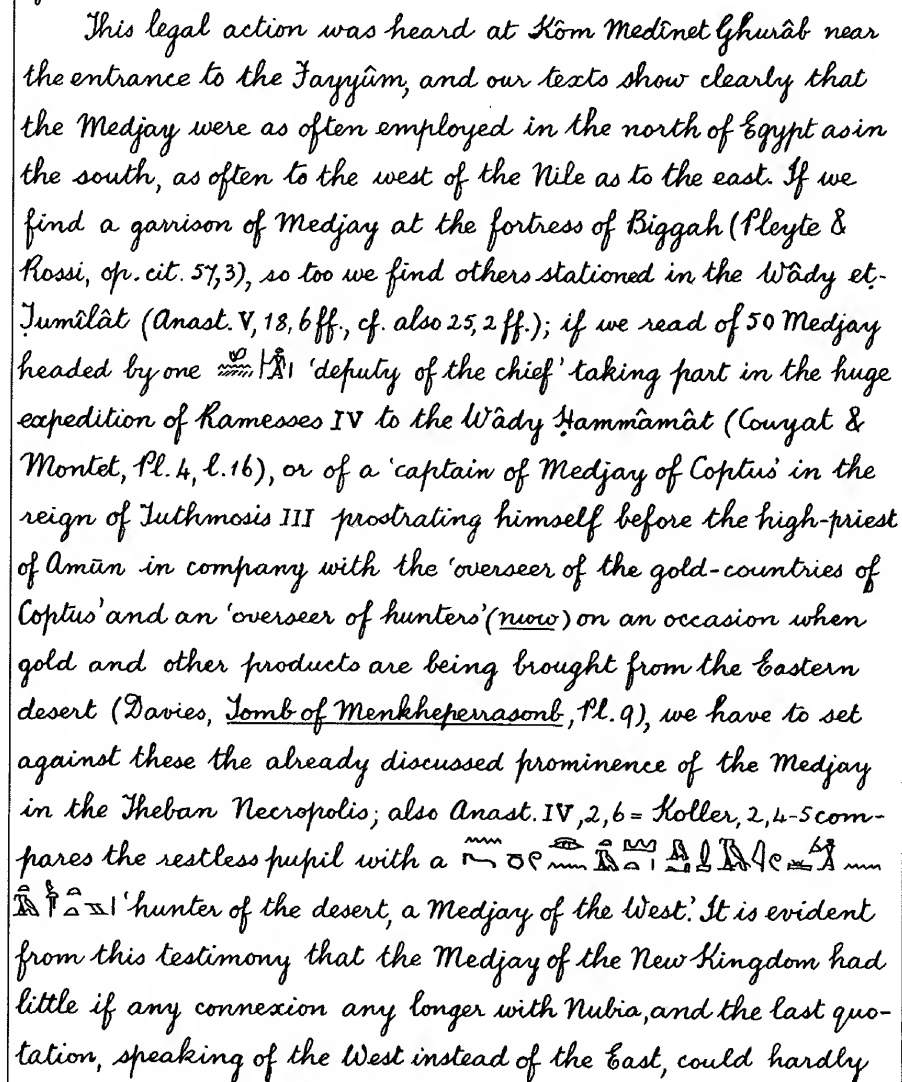 This legal action was heard at Kôm Medînet Ghurâb near
the entrance to the Fayyûm, and our texts show clearly that
the Medjay were as often employed in the north of Egypt as in
the south, as often to the west of the Nile as to the east. If we
find a garrison of Medjay at the fortress of Biggah (Pleyte &
Rossi, op. cit. 57,3), so too we find others stationed in the Wâdy eṭ-
Ṭumîlât (Anast. V, 18, 6 ff., cf. also 25, 2 ff.); if we read of 50 Medjay
headed by one 'deputy of the chief' taking part in the huge
expedition of Ramesses IV to the Wâdy Ḥammâmât (Couyat &
Montet, Pl. 4, l. 16), or of a 'captain of Medjay of Coptus' in the
reign of Tuthmosis III prostrating himself before the high-priest
of Amūn in company with the 'overseer of the gold-countries of
Coptus' and an 'overseer of hunters' (nww) on an occasion when
gold and other products are being brought from the Eastern
desert (Davies, Tomb of Menkheperrasonb, Pl. 9), we have to set
against these the already discussed prominence of the Medjay
in the Theban Necropolis; also Anast. IV, 2, 6 = Koller, 2, 4-5 com-
pares the restless pupil with a
'hunter of the desert, a Medjay of the West.' It is evident
from this testimony that the Medjay of the New Kingdom had
little if any connexion any longer with Nubia, and the last quo-
tation, speaking of the West instead of the East, could hardly